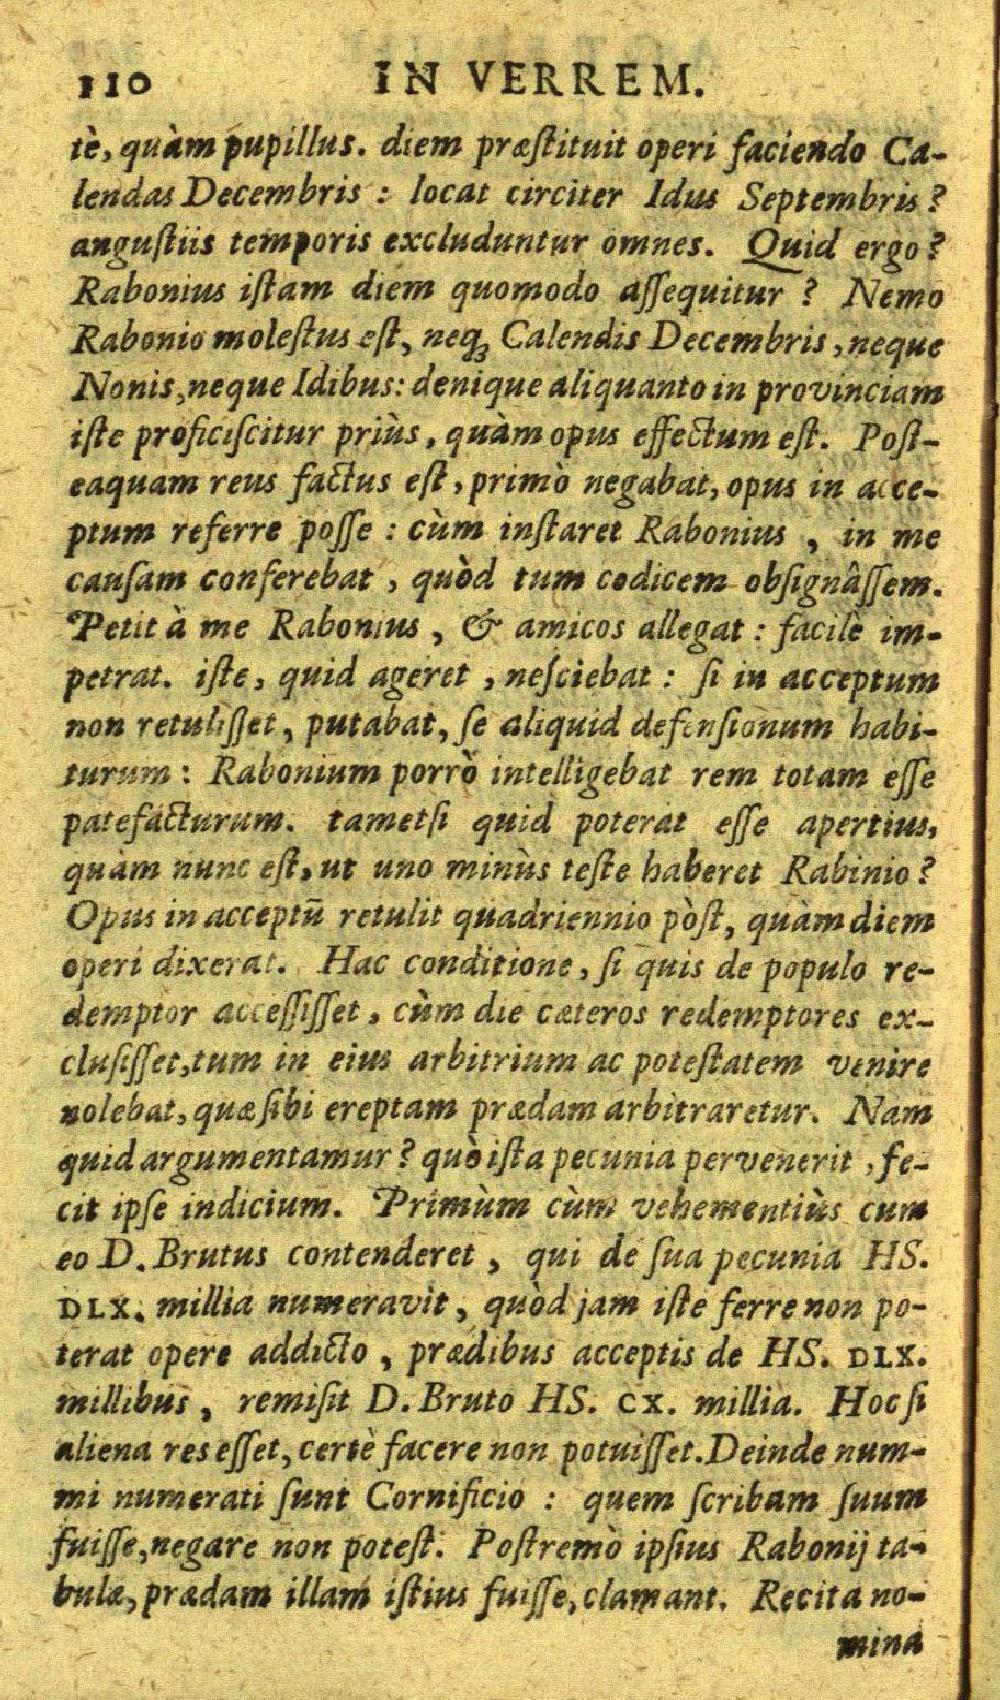 110 IN VERREM.
tè, quàm pupillus. diem præſtituit operi faciendo Ca-
lendas Decembris : locat circiter Idus Septembris ?
anguſtiis temporis excluduntur omnes. Quid ergo ?
Rabonius iſtam diem quomodo aſſequitur ? Nemo
Rabonio moleſtus eſt, neq; Calendis Decembris, neque
Nonis, neque Idibus: denique aliquanto in provinciam
iſte proficiſcitur priùs, quàm opus effectum eſt. Poſt-
eaquam reus factus eſt, primò negabat, opus in acce-
ptum referre poſſe : cùm inſtaret Rabonius , in me
cauſam conferebat , quòd tum codicem obſignâſſem.
Petit à me Rabonius , & amicos allegat : facilè im-
petrat. iſte, quid ageret , neſciebat : ſi in acceptum
non retuliſſet, putabat, ſe aliquid defenſionum habi-
turum : Rabonium porrò intelligebat rem totam eſſe
patefacturum. tametſi quid poterat eſſe apertius,
quàm nunc eſt, ut uno minùs teſte haberet Rabinio ?
Opus in acceptū retulit quadriennio pòſt, quàm diem
operi dixerat. Hac conditione, ſi quis de populo re-
demptor acceſſiſſet, cùm die cæteros redemptores ex-
cluſiſſet, tum in eius arbitrium ac poteſtatem venire
nolebat, quæ ſibi ereptam prædam arbitraretur. Nam
quid argumentamur ? quò iſta pecunia pervenerit , fe-
cit ipſe indicium. Primùm cùm vehementiùs cum
eo D. Brutus contenderet , qui de ſua pecunia HS.
DLX. millia numeravit, quòd jam iſte ferre non po-
terat opere addicto , prædibus acceptis de HS. DLX.
millibus , remiſit D. Bruto HS. CX. millia. Hoc ſi
aliena res eſſet, certè facere non potuiſſet. Deinde num-
mi numerati ſunt Cornificio : quem ſcribam ſuum
fuiſſe, negare non poteſt. Poſtremò ipſius Rabonij ta-
bulæ, prædam illam iſtius fuiſſe, clamant. Recita no-
mina